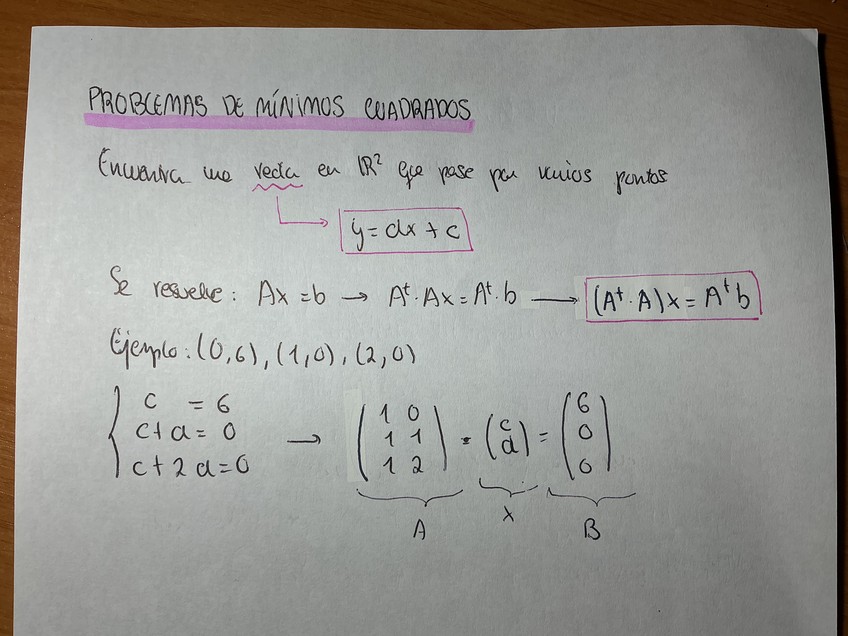 PROBLEMAS DE MÍNIMOS CUADRADOS
Encuentra una recta en ℝ² que pase por varios puntos
y = dx + c
Se resuelve: Ax = b → Aᵗ·Ax = Aᵗ·b → (Aᵗ·A)x = Aᵗb
Ejemplo: (0,6), (1,0), (2,0)
c = 6
c+d = 0
c+2d = 0
→
1 0
1 1
1 2
·
c
d
=
6
0
0
A x B